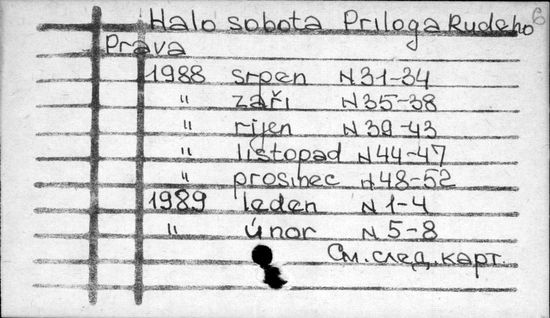 6
Halo sobota Priloga Rudeho
Prava
1988 srpen N 31-34
" září N 35-38
" rijen N 39-43
" listopad N 44-47
" prosinec N 48-52
1989 leden N 1-4
" únor N 5-8
См. след. карт.